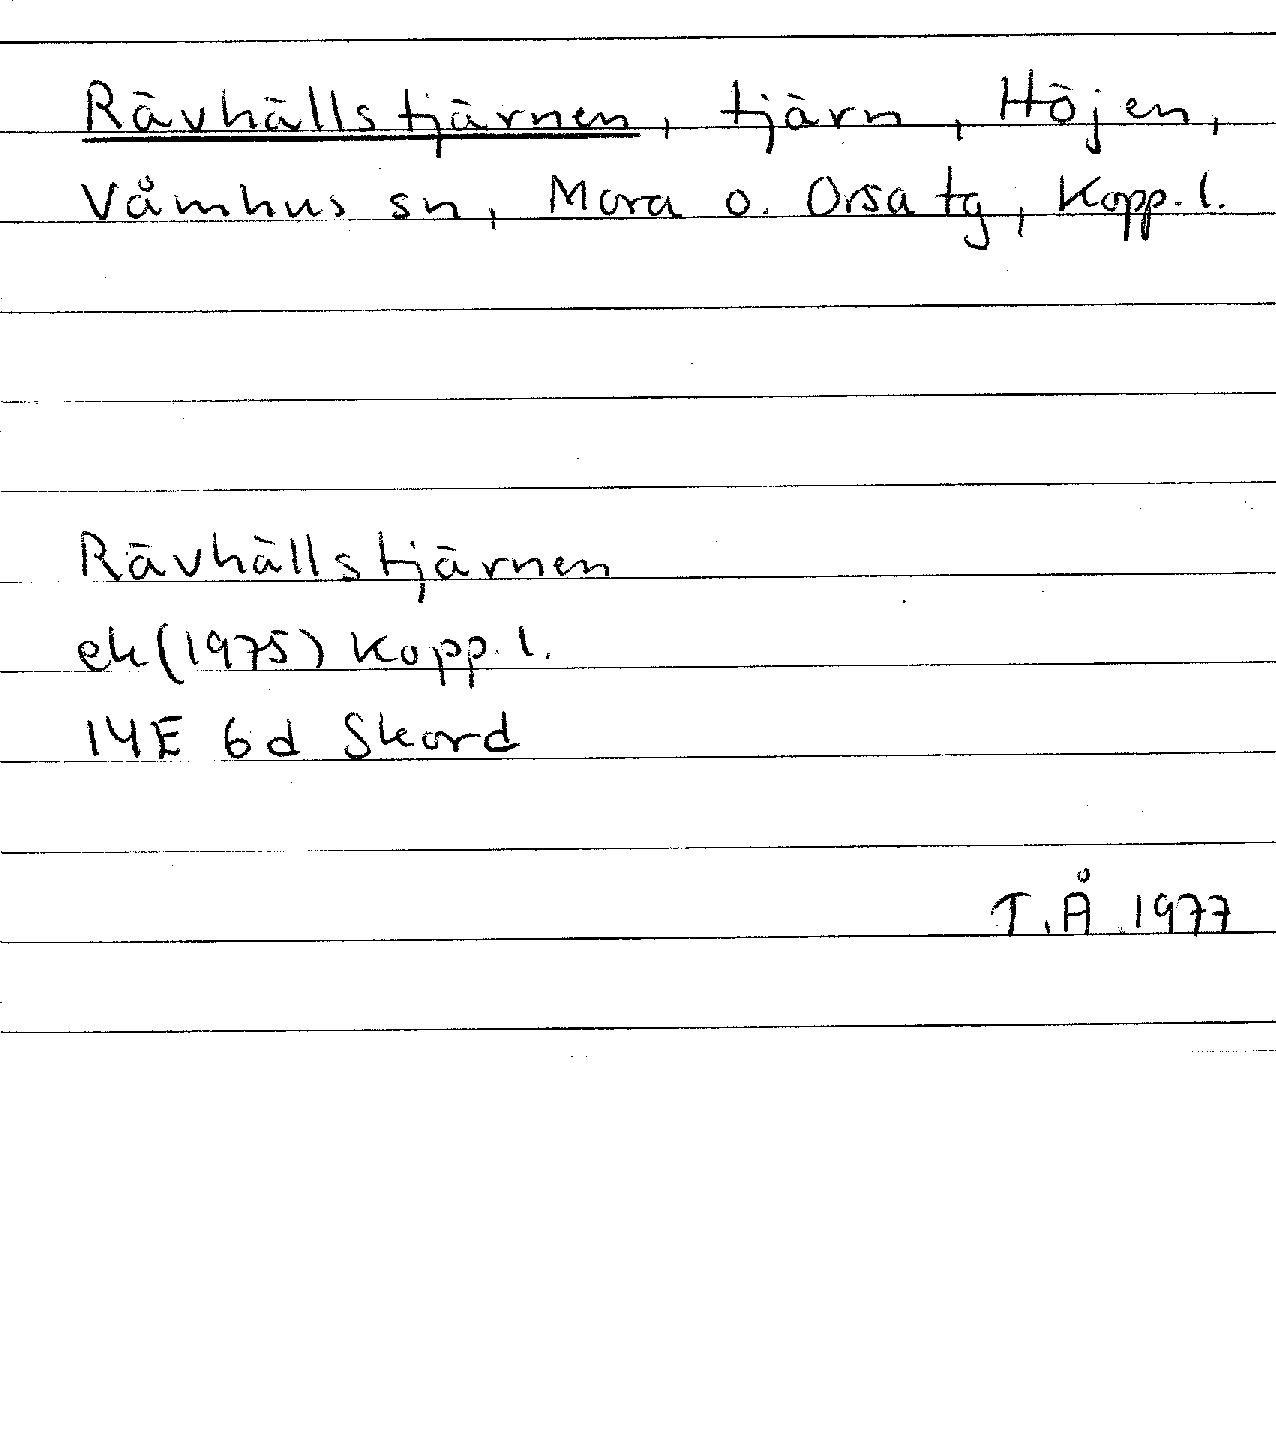 Rävhällstjärnen, tjärn, Höjen,
Våmhus sn, Mora o. Orsa tg, Kopp. l.
Rävhällstjärnen
ek (1975) Kopp. l.
14E 6d Skord
T. Å. 1977